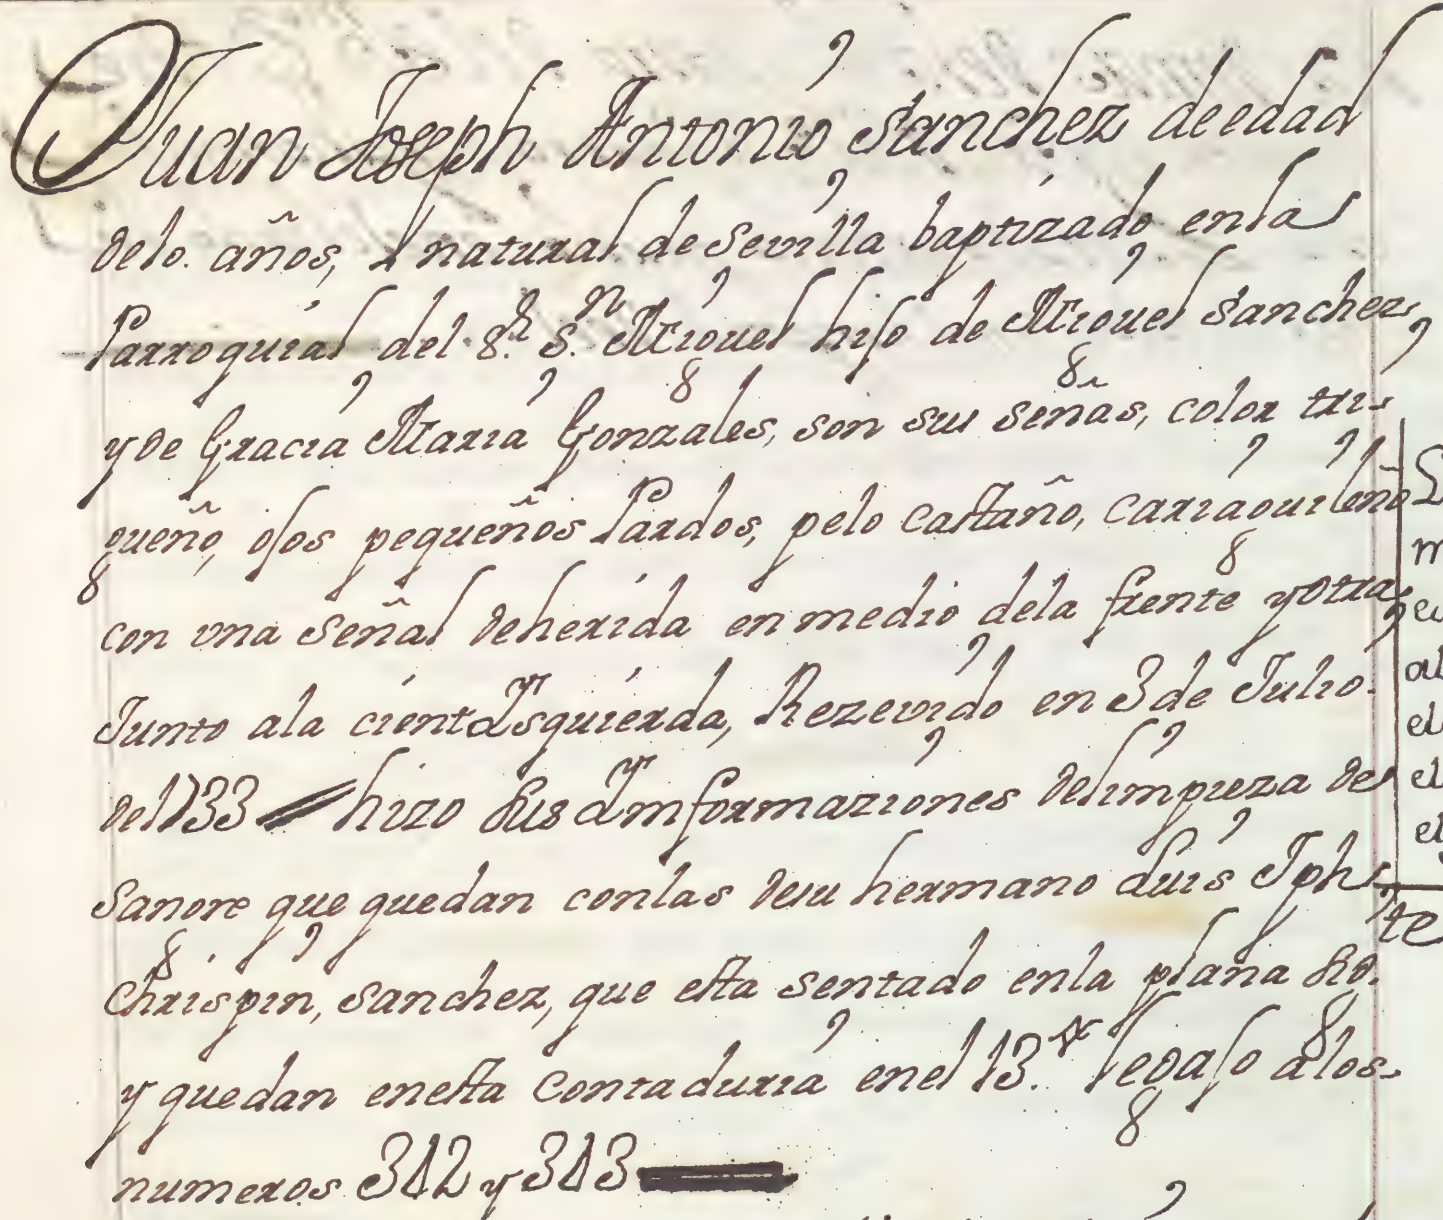 Juan Joseph Antonio Sanchez de edad
de 10. años, natural de Sevilla baptizado en la
Parroquial del S.r S.n Miguel hijo de Miguel Sanchez,
y de Gracia Maria Gonzales, son sus señas, color tri-
gueño, ojos pequeños Pardos, pelo castaño, cariaguileño
con vna señal de herida en medio dela frente y otra
Junto ala cien Ysquierda, Rezevido en 3 de Julio
del 1733 hizo sus Ynformaziones de limpieza de
Sangre que quedan con las de su hermano Luis Jph
Chrispin, Sanchez, que esta sentado en la plana
y quedan en esta Contaduria en el 13.º legajo a los
numeros 312 y 313
te